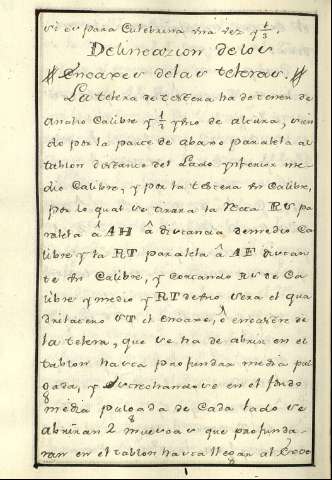 si es para Culebrina una vez y 1/3.
Delineacion de los
Encaxes de las teleras.
La telera de testera ha de tener de
ancho Calibre y 1/2 y uno de altura, sien
do por la parte de abaxo paralela al
tablon distante del Lado ynferior me-
dio Calibre, y por la testera un Calibre,
por lo qual se tirara la Recta RS pa
ralela â AH â distancia de medio Ca
libre y la RT paralela â AE distan
te un Calibre, y cortando RS de Ca
libre y medio y RT de uno sera el qua
drilatero ST el encaxe, ô encaxe de
la telera, que se ha de abrir en el
tablon hasta profundar media pul
gada, y estrechandose en el fondo
media pulgada de Cada lado se
abriran 2 muescas que profunda-
ran en el tablon hasta llegar al